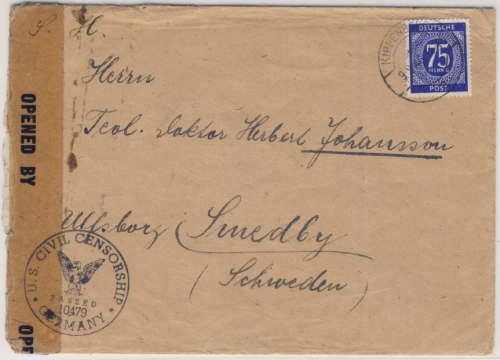 S. H.
Herrn
Teol. Doktor Herbert Johansson
Ulfsborg Smedby
(Schweden)
DEUTSCHE
75
PFENNIG
POST
KIPFEN
OPENED BY
U.S. CIVIL CENSORSHIP
PASSED
10479
GERMANY
OPE